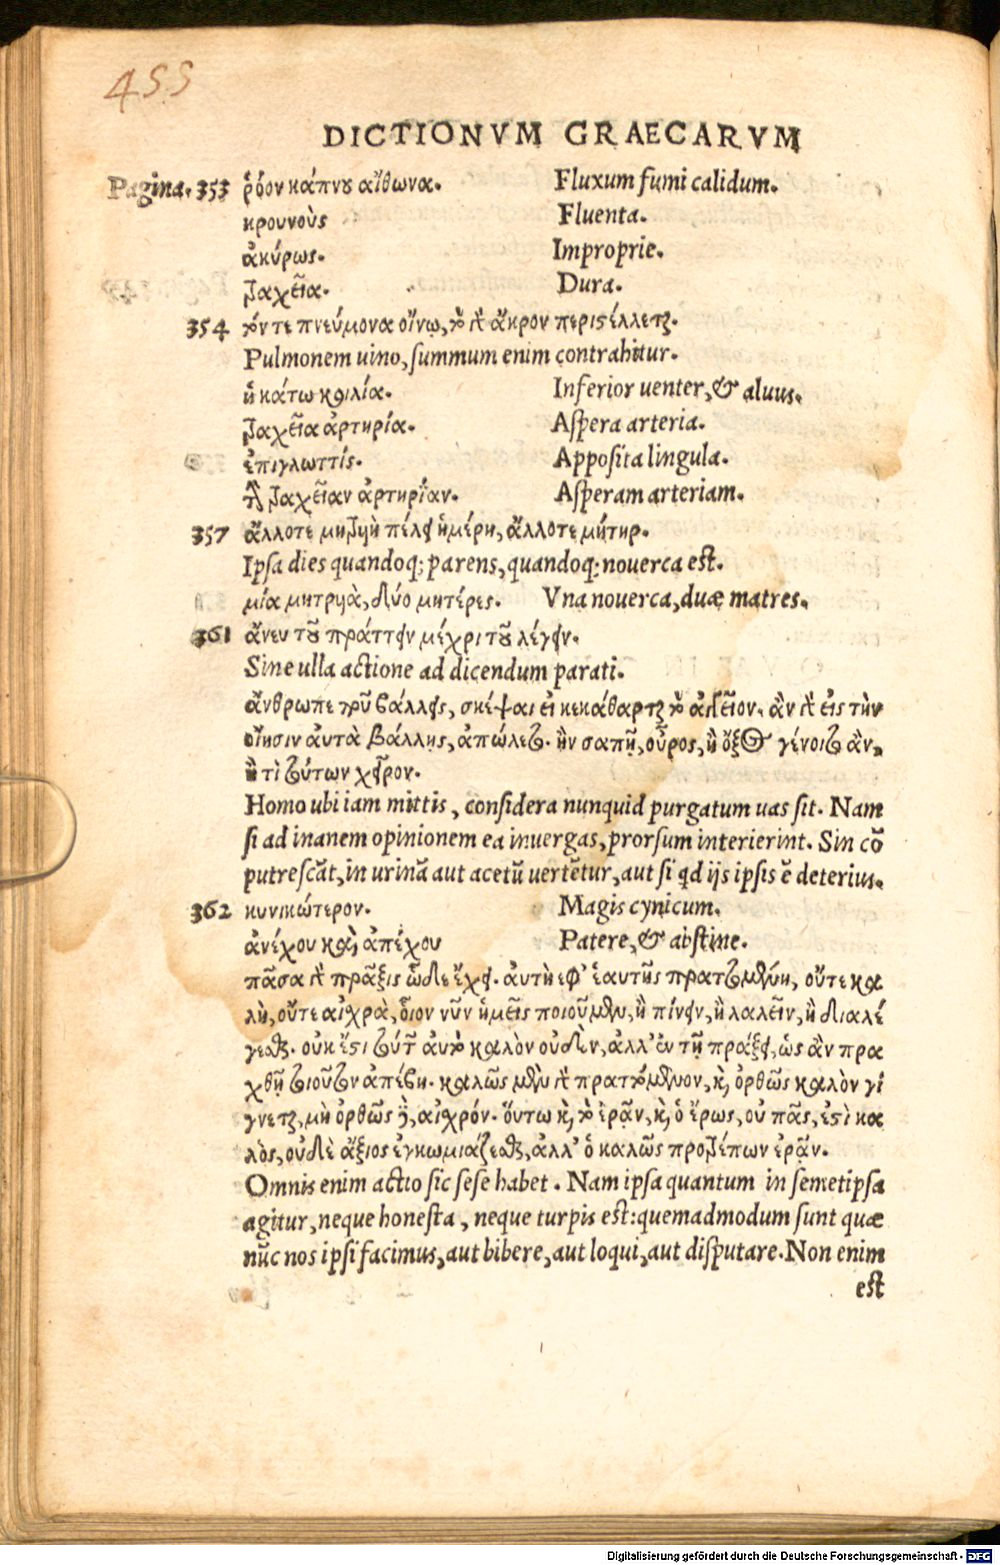 455
DICTIONVM GRAECARVM
Pagina. 353 ῥόον κάπνου αἴθωνα. Fluxum fumi calidum.
κρουνοὺς Fluenta.
ἀκύρως. Improprie.
τραχεῖα. Dura.
354 τόντε πνεύμονα οἴνῳ, τὸ δὲ ἄκρον περιστέλλεται.
Pulmonem uino, summum enim contrahitur.
ἡ κάτω κοιλία. Inferior uenter, & aluus.
τραχεῖα ἀρτηρία. Aspera arteria.
ἐπιγλωττίς. Apposita lingula.
τὴν τραχεῖαν ἀρτηρίαν. Asperam arteriam.
357 ἄλλοτε μητρυὴ πέλει ἡμέρη, ἄλλοτε μήτηρ.
Ipsa dies quandoq; parens, quandoq; nouerca est.
μία μητρυὰ, δύο μητέρες. Vna nouerca, duæ matres.
361 ἄνευ τοῦ πράττειν μέχρι τοῦ λέγειν.
Sine ulla actione ad dicendum parati.
ἄνθρωπε ποῦ βάλλεις, σκέψαι εἰ κεκάθαρται τὸ ἀγγεῖον. ἂν δὲ εἰς τὴν
οἴησιν ἀυτὰ βάλλης, ἀπώλετο. ἢν σαπῇ, οὖρος, ἢ ὄξος γένοιτο ἂν,
ἢ τὶ τούτων χεῖρον.
Homo ubi iam mittis, considera nunquid purgatum uas sit. Nam
si ad inanem opinionem ea inuergas, prorsum interierint. Sin cō
putrescāt, in urinā aut acetū uertētur, aut si qd ijs ipsis ē deterius.
362 κυνικώτερον. Magis cynicum.
ἀνέχου καὶ ἀπέχου Patere, & abstine.
πᾶσα δὲ πρᾶξις ὧδε ἔχει. ἀυτὴ εφ' ἑαυτῆς πραττομένη, οὔτε κα
λὴ, οὔτε αἰχρὰ, ὅιον νῦν ἡμεῖς ποιοῦμεν, ἢ πίνειν, ἢ λαλεῖν, ἢ διαλέ
γεσθαι. οὐκ ἔστι τούτων ἀυτὸ καλὸν οὐδὲν, ἀλλ' ἐν τῇ πράξει, ὡς ἂν πρα
χθῇ τοιοῦτον ἀπέβη. καλῶς μὲν δὲ πρατόμενον, καὶ ὀρθῶς καλὸν γί
γνεται, μὴ ὀρθῶς δὲ, αἰχρόν. ὅυτω καὶ τὸ ἐρᾷν, καὶ ὁ ἔρως, οὐ πᾶς, ἐστὶ κα
λὸς, οὐδὲ ἄξιος ἐγκωμιάζεσθαι, ἀλλ' ὁ καλῶς προτρέπων ἐρᾷν.
Omnis enim actio sic sese habet. Nam ipsa quantum in semetipsa
agitur, neque honesta, neque turpis est: quemadmodum sunt quæ
nūc nos ipsi facimus, aut bibere, aut loqui, aut disputare. Non enim
est
Digitalisierung gefördert durch die Deutsche Forschungsgemeinschaft - DFG